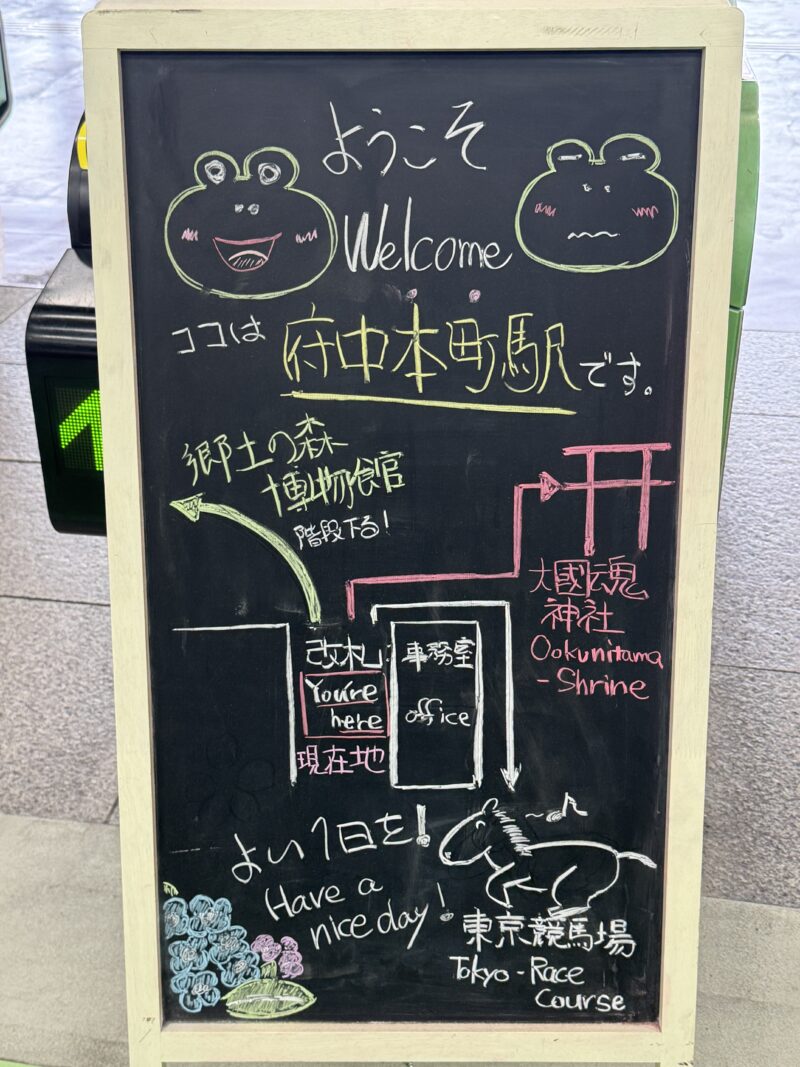 ようこそ
Welcome
ココは 府中本町駅です。
郷土の森
博物館官
階段下る!
大國魂
神社
Ookunitama
-Shrine
改札
You're
here
現在地
事務室
office
よい1日を!
Have a
nice day!
東京競馬場
Tokyo-Race
Course